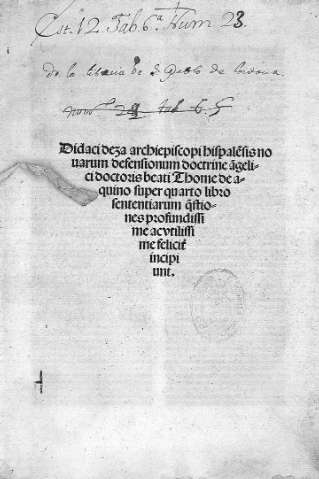 Est. 12. Tab. 6ª. Num 23.
de la libreria de S. Pablo de cordova.
Didaci deza archiepiscopi hispalēsis no
uarum defensionum doctrine āgeli-
ci doctoris beati Thome de a-
quino super quarto libro
sententiarum q̄stio-
nes profundissi
me ac vtilissi
me felicit̄
incipi
unt.